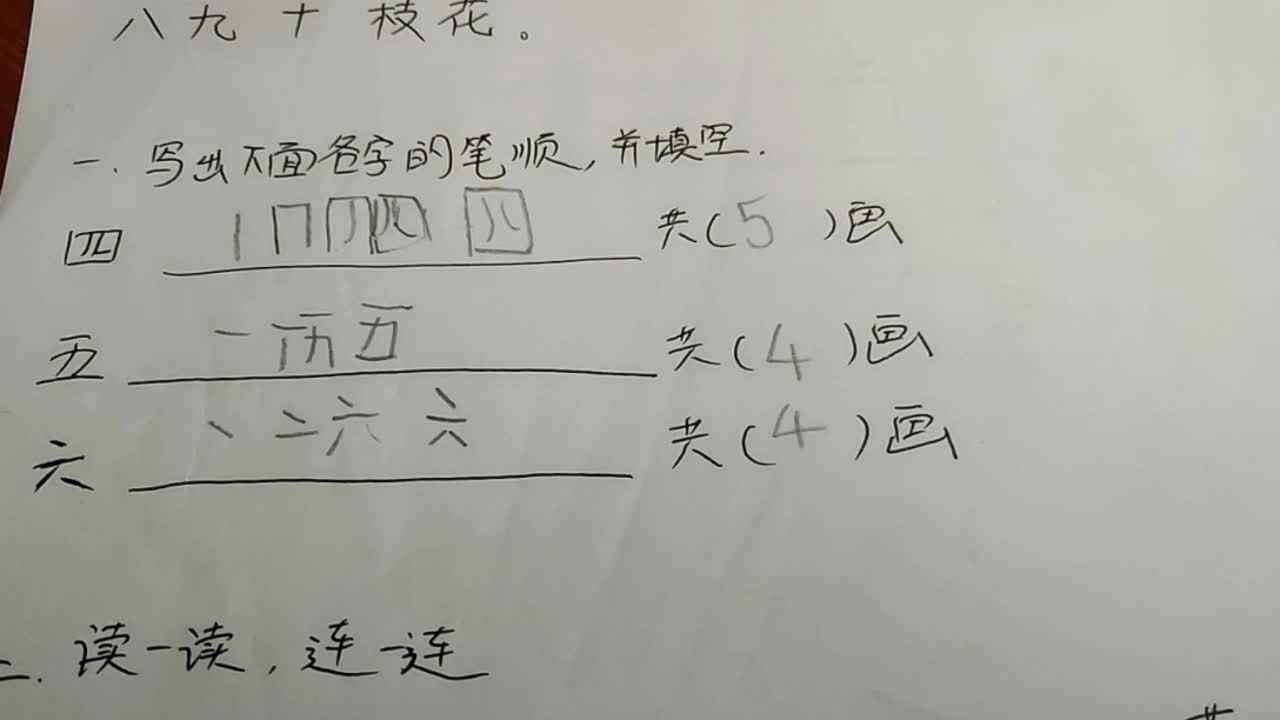 八九十枝花。
一.写出下面各字的笔顺,并填空.
四 丨 冂 四 四 共(5)画
五 一 五 共(4)画
六 丶 亠 六 六 共(4)画
二.读一读,连一连